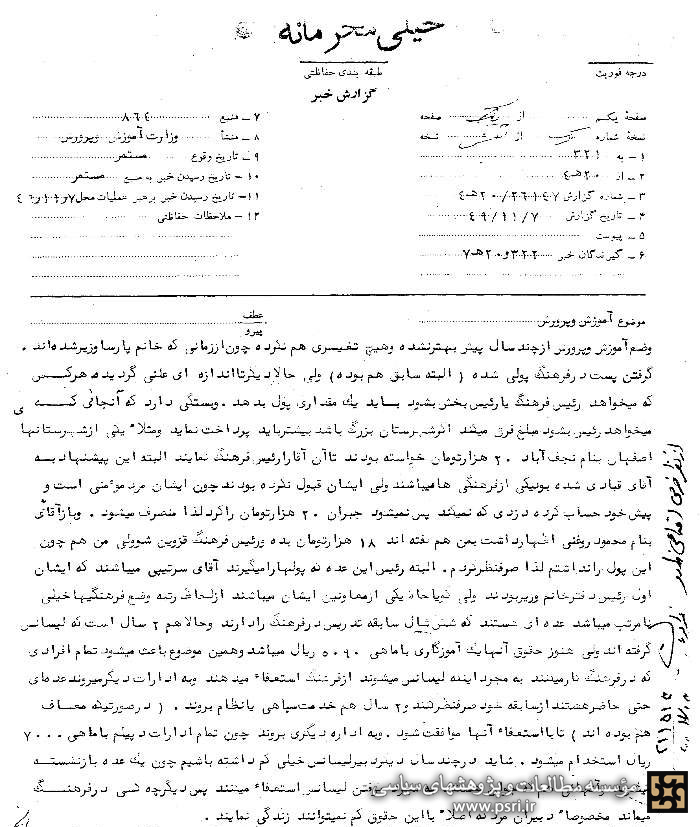 خیلی محرمانه
طبقه بندی حفاظتی
درجه فوریت
گزارش خبر
صفحهٔ یکم از یک صفحه
نسخهٔ شماره یک از شش نسخه
۱ – به ۳۲۱
۲ – از ۲۰ هـ ۴
۳ – شماره گزارش ۲۶۱۴۷/۲۰ هـ ۴
۴ – تاریخ گزارش ۴۹/۱۱/۷
۵ – پیوست
۶ – گیرندگان خبر ۳۲۲ و ۲۰ هـ ۷
۷ – منبع ۸۶۴
۸ – منشأ وزارت آموزش و پرورش
۹ – تاریخ وقوع مستمر
۱۰ – تاریخ رسیدن خبر به منبع مستمر
۱۱ – تاریخ رسیدن خبر برهبر عملیات محل
۱۲ – ملاحظات حفاظتی
موضوع آموزش وپرورش
عطف
پیرو
وضع آموزش وپرورش ازچند سال پیش بهترنشده وهیچ تغییری هم نکرده چون اززمانی که خانم پارسا وزیرشده اند .
گرفتن پست درفرهنگ پولی شده ( البته سابق هم بوده ) ولی حالا دیگرتا اندازه ای علنی گردیده هرکس
که میخواهد رئیس فرهنگ یارئیس بخش بشود باید یك مقداری پول بدهد . وبستگی دارد که آنجائی کــه
میخواهد رئیس بشود مبلغ فرق میکند اگرشهرستان بزرگ باشد بیشترباید پرداخت نماید ومثلا" یکی ازشهرستانها
اصفهان بنام نجف آباد ۲۰ هزارتومان خواسته بودند تا آن آقارارئیس فرهنگ نمایند البته این پیشنهاد بـه
آقای قبادی شده بود یکی ازفرهنگی ها میباشند ولی ایشان قبول نکرده بودند چون ایشان مرد مؤمنی است و
پیش خود حساب کرده دزدی که نمیکند پس نمیشود جبران ۲۰ هزارتومان راکرد لذا منصرف میشود . وبازآقای
بنام محمود روغنی اظهارداشت بمن هم گفته اند ۱۸ هزارتومان بده ورئیس فرهنگ قزوین شوولی من هم چون
این پول رانداشتم لذا صرفنظرکردم . البته رئیس این عده که پولهارامیگیرند آقای سرتیپی میباشند که ایشان
اول رئیس دفترخانم وزیربودند ولی گویا حالا یکی ازمعاونین ایشان میباشند ازلحاظ رتبه وضع فرهنگیها خیلی
نامرتب میباشد عده ای هستند که شش سال سابقه تدریس درفرهنگ رادارند وحالا هم ۲ سال است که لیسانس
گرفته اند ولی هنوز حقوق آنها یك آموزگاری با ماهی ۵۰۹۰ ریال میباشد وهمین موضوع باعث میشود تمام افرادی
که درفرهنگ کارمیکنند به مجرد اینکه لیسانس میشوند ازفرهنگ استعفاء میدهند وبه ادارات دیگرمیروند عده ای
حتی حاضرهستند ازسابقه خود صرفنظرکنند و۲ سال هم خدمت سپاهی یانظام بروند . ( درصورتیکه معـــاف
هم بوده اند ) تابااستعفاء آنها موافقت شود . وبه اداره دیگری بروند چون تمام ادارات دیپلم باماهی ۷۰۰۰
ریال استخدام میشود . شاید درچند سال دیگردبیرلیسانس خیلی کم داشته باشیم چون یك عده بازنشسته
گرفتن لیسانس استعفاء میکنند پس دیگرچه کسی درفرهنــــگ
میماند مخصوصا" دبیران مرد که اصلا" بااین حقوق کم نمیتوانند زندگی نمایند .
مؤسسه مطالعات و پژوهشهای سیاسی
www.psri.ir